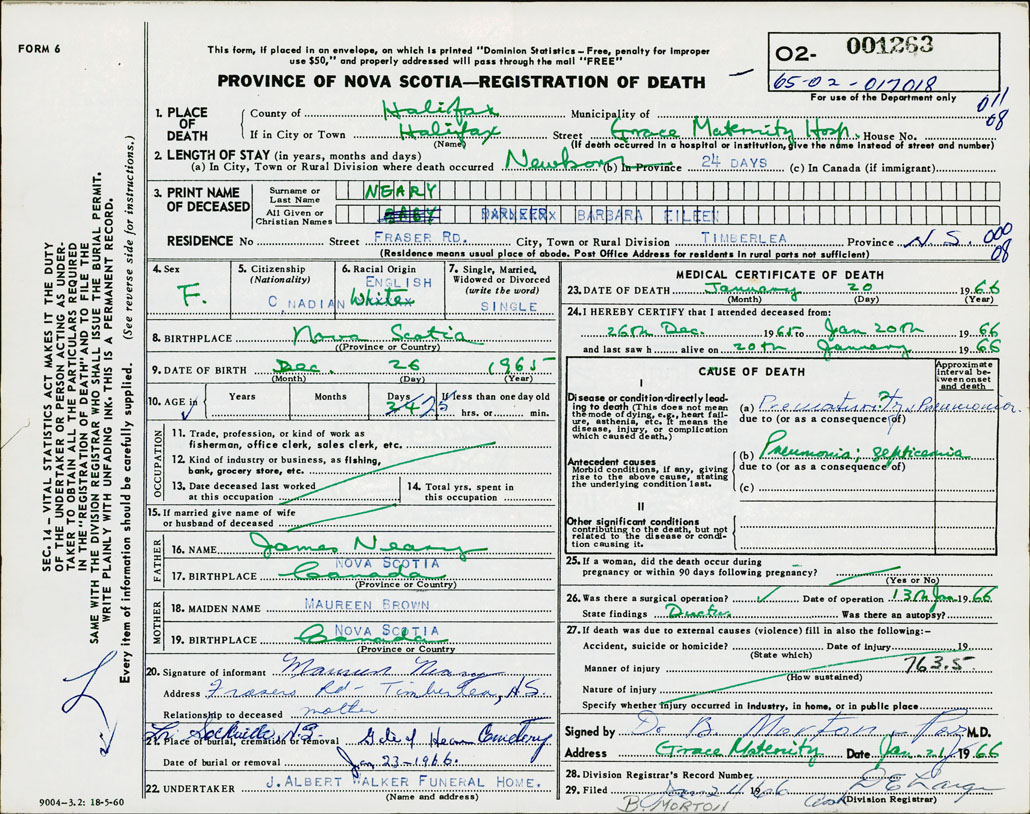 FORM 6
This form, if placed in an envelope, on which is printed "Dominion Statistics – Free, penalty for improper
use $50," and properly addressed will pass through the mail "FREE"
PROVINCE OF NOVA SCOTIA—REGISTRATION OF DEATH
02- 001263
65-02-017018
For use of the Department only
011
08
1. PLACE OF DEATH
County of Halifax Municipality of
If in City or Town Halifax Street Grace Maternity Hosp. House No.
(Name) (If death occurred in a hospital or institution, give the name instead of street and number)
2. LENGTH OF STAY (in years, months and days)
(a) In City, Town or Rural Division where death occurred Newborn (b) In Province 24 DAYS (c) In Canada (if immigrant)
3. PRINT NAME OF DECEASED
Surname or Last Name NEARY
All Given or Christian Names BABY BARBARA EILEEN
RESIDENCE No Street FRASER RD. City, Town or Rural Division TIMBERLEA Province N.S. 000
08
(Residence means usual place of abode. Post Office Address for residents in rural parts not sufficient)
4. Sex
F.
5. Citizenship
(Nationality)
C NADIAN
6. Racial Origin
ENGLISH
White
7. Single, Married,
Widowed or Divorced
(write the word)
SINGLE
8. BIRTHPLACE Nova Scotia
(Province or Country)
9. DATE OF BIRTH Dec. 26 1965
(Month) (Day) (Year)
10. AGE in Years Months Days If less than one day old
24/25 hrs. or min.
OCCUPATION
11. Trade, profession, or kind of work as
fisherman, office clerk, sales clerk, etc.
12. Kind of industry or business, as fishing,
bank, grocery store, etc.
13. Date deceased last worked
at this occupation
14. Total yrs. spent in
this occupation
15. If married give name of wife
or husband of deceased
FATHER
16. NAME James Neary
NOVA SCOTIA
17. BIRTHPLACE Canada
(Province or Country)
MOTHER
18. MAIDEN NAME MAUREEN BROWN
NOVA SCOTIA
19. BIRTHPLACE Canada
(Province or Country
20. Signature of informant Maureen Neary
Address Frasers Rd - Timberlea, N.S.
Relationship to deceased mother
Sackville, N.S.
21. Place of burial, cremation or removal Gate of Heaven Cemetery
Date of burial or removal Jan 23-1966.
22. UNDERTAKER J. ALBERT WALKER FUNERAL HOME.
(Name and address)
MEDICAL CERTIFICATE OF DEATH
23. DATE OF DEATH January 20 1966
(Month) (Day) (Year)
24. I HEREBY CERTIFY that I attended deceased from:
26th Dec. 1965 to Jan 20th 1966
and last saw h alive on 20th January 1966
CAUSE OF DEATH
Approximate
interval be-
tween onset
and death
I
Disease or condition-directly lead-
ing to death (This does not mean
the mode of dying, e.g., heart fail-
ure, asthenia, etc. It means the
disease, injury, or complication
which caused death.)
(a) Prematurity, Pneumonia
due to (or as a consequence of)
Antecedent causes
Morbid conditions, if any, giving
rise to the above cause, stating
the underlying condition last.
(b) Pneumonia; septicemia
due to (or as a consequence of)
(c)
II
Other significant conditions
contributing to the death, but not
related to the disease or condi-
tion causing it.
25. If a woman, did the death occur during
pregnancy or within 90 days following pregnancy?
(Yes or No)
26. Was there a surgical operation? ✓ Date of operation 13th Jan 1966
State findings Ductus Was there an autopsy?
27. If death was due to external causes (violence) fill in also the following:–
Accident, suicide or homicide? Date of injury 19
(State which)
Manner of injury 763.5
(How sustained)
Nature of injury
Specify whether injury occurred in industry, in home, or in public place
Signed by Dr. B. Morton M.D.
Address Grace Maternity Date Jan 21/1966
28. Division Registrar's Record Number
29. Filed Jan 21 1966
(Division Registrar)
B. MORTON
SEC. 14 – VITAL STATISTICS ACT MAKES IT THE DUTY
OF THE UNDERTAKER OR PERSON ACTING AS UNDER-
TAKER TO OBTAIN ALL THE PARTICULARS REQUIRED
IN THE "REGISTRATION OF DEATH" AND TO FILE THE
SAME WITH THE DIVISION REGISTRAR WHO SHALL ISSUE THE BURIAL PERMIT.
WRITE PLAINLY WITH UNFADING INK. THIS IS A PERMANENT RECORD.
Every item of information should be carefully supplied. (See reverse side for instructions.)
9004–3.2: 18-5-60